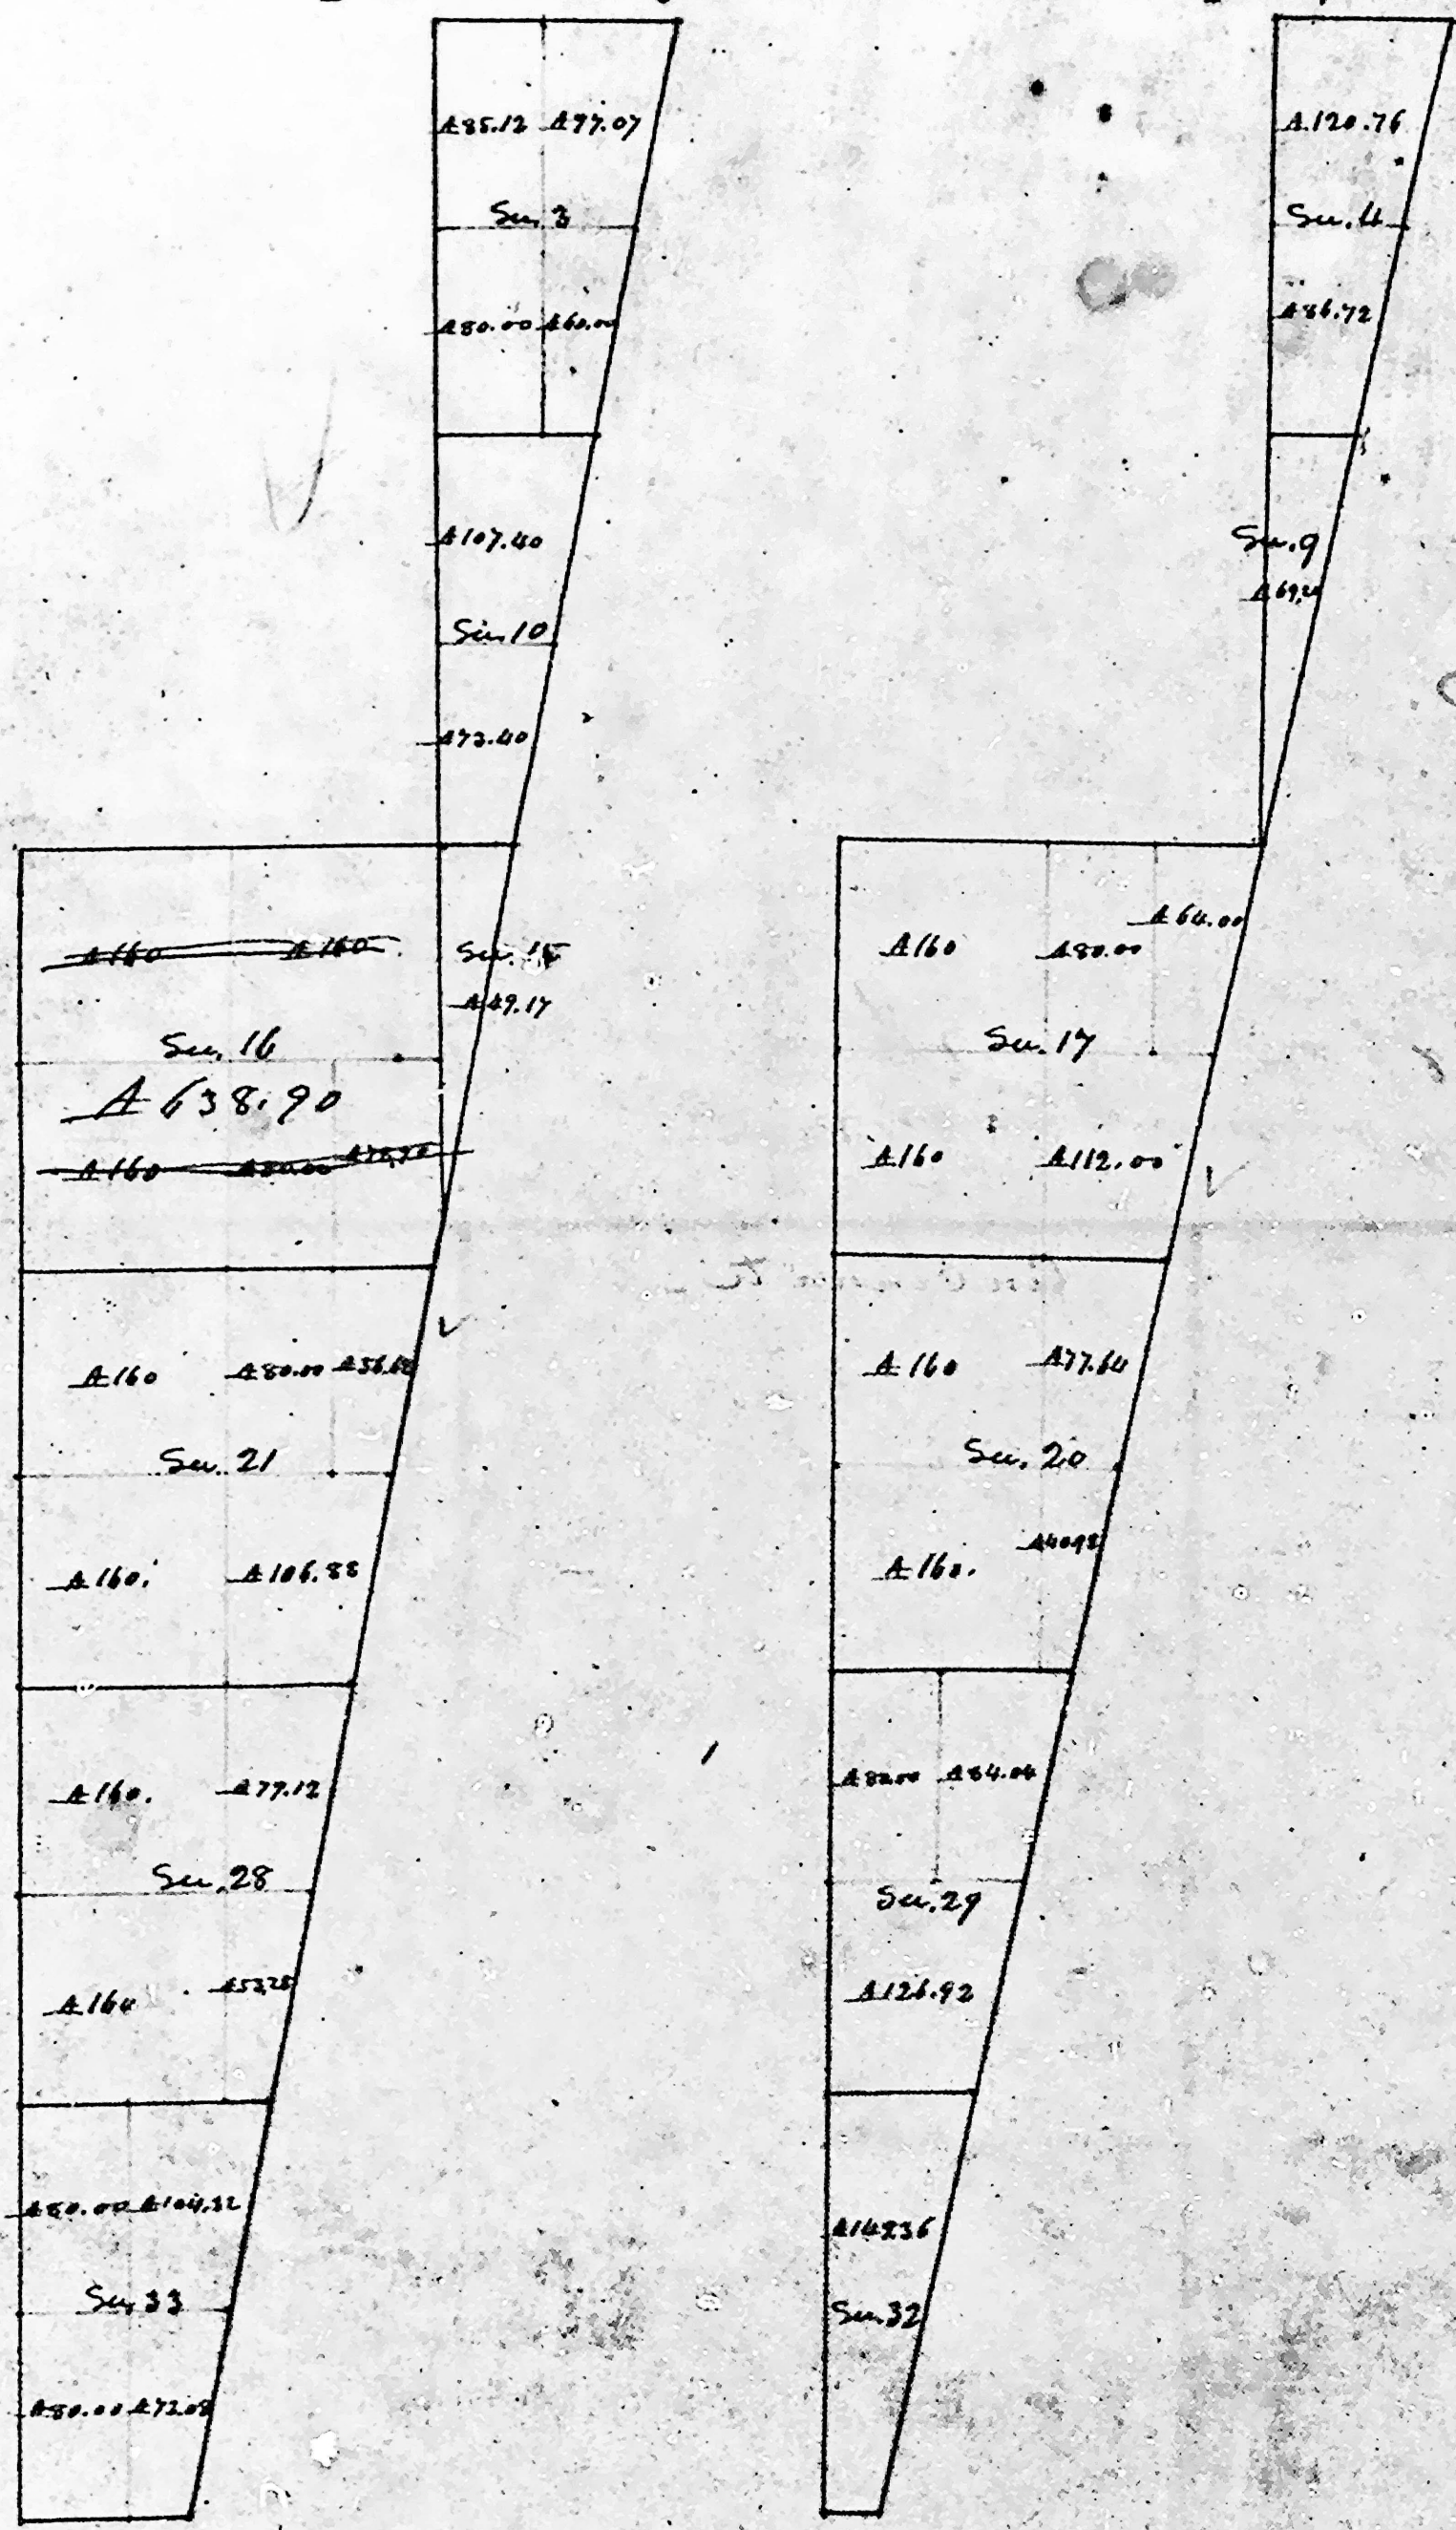 A85.12 A97.07
Sec. 3
A80.00 A60.00
A107.40
Sec. 10
A73.40
A160 A160
Sec. 15
A49.17
Sec. 16
A 638.90
A160 A80.00
A160 A80.00 A56.68
Sec. 21
A160. A106.88
A160. A77.12
Sec. 28
A160 A53.28
A80.00 A104.32
Sec. 33
A80.00 A72.08
A.120.76
Sec. 4
A86.72
Sec. 9
A64.00
A160 A80.00
Sec. 17
A160 A112.00
A160 A77.64
Sec. 20
A160.
A80.00 A84.04
Sec. 29
A126.92
A142.36
Sec. 32